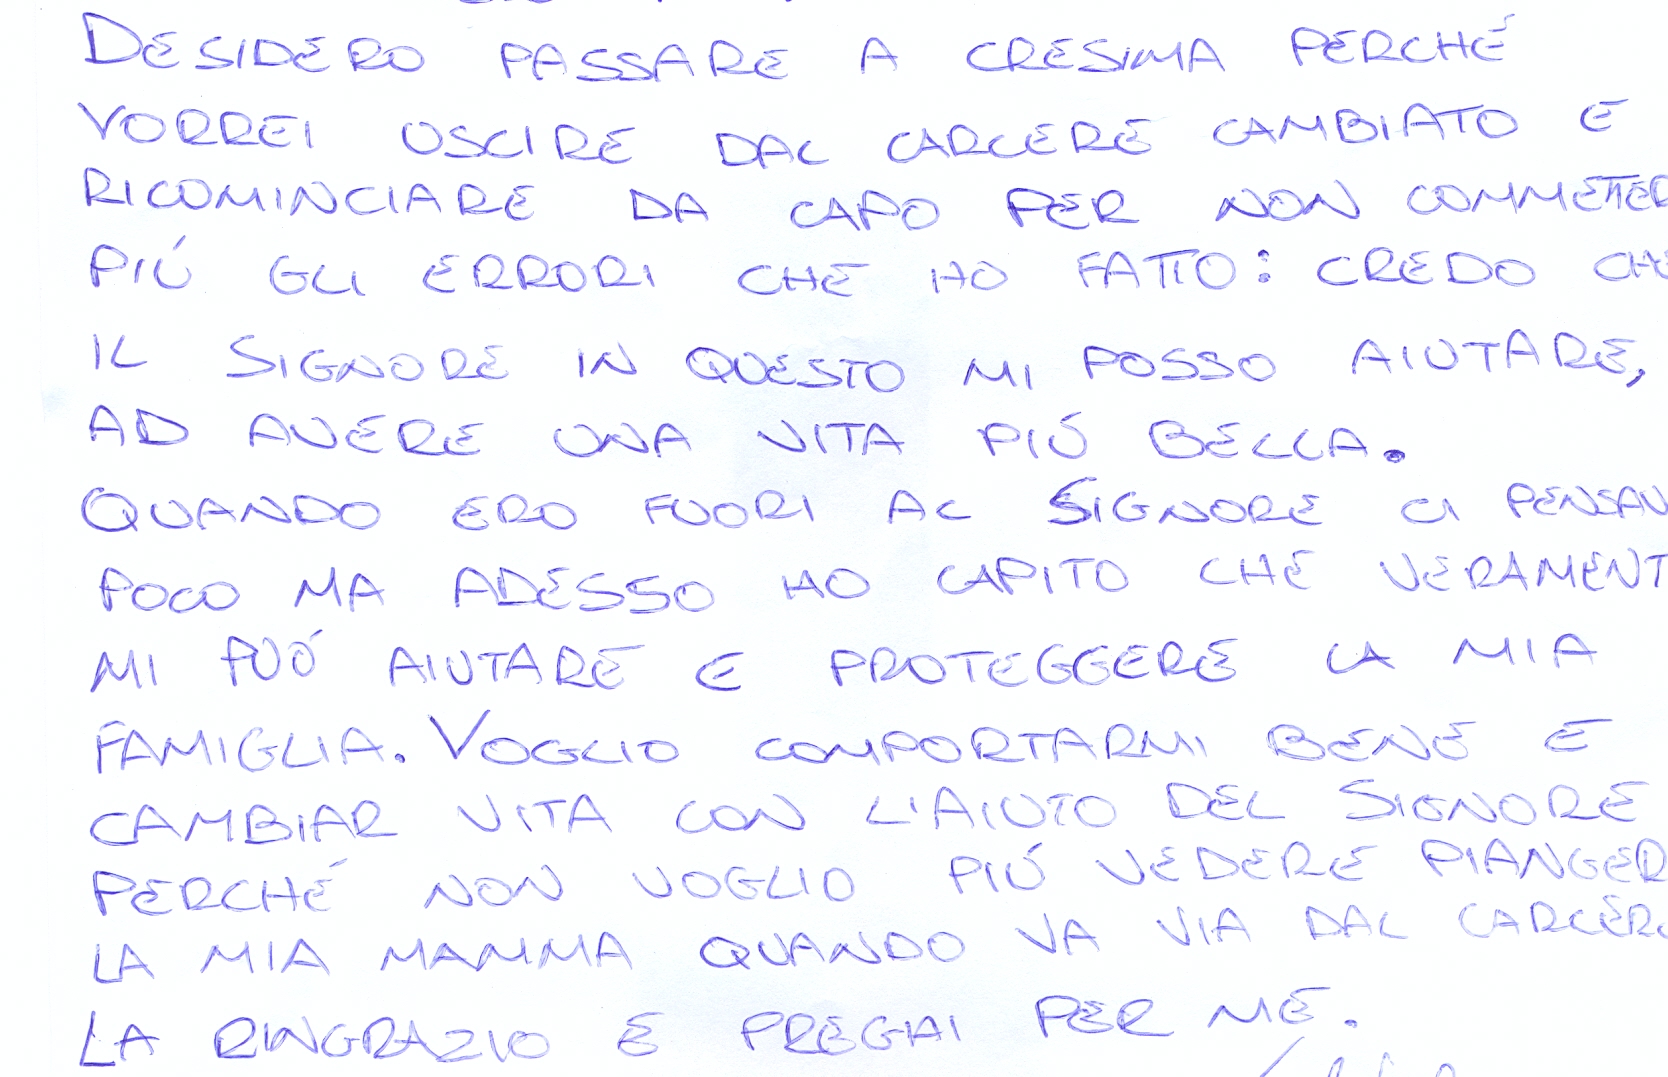 DESIDERO PASSARE A CRESIMA PERCHÉ
VORREI USCIRE DAL CARCERE CAMBIATO E
RICOMINCIARE DA CAPO PER NON COMMETTER
PIÚ GLI ERRORI CHE HO FATTO: CREDO CHE
IL SIGNORE IN QUESTO MI POSSO AIUTARE,
AD AVERE UNA VITA PIÚ BELLA.
QUANDO ERO FUORI AL SIGNORE CI PENSAV
POCO MA ADESSO HO CAPITO CHE VERAMENT
MI PUÓ AIUTARE E PROTEGGERE LA MIA
FAMIGLIA. VOGLIO COMPORTARMI BENE E
CAMBIAR VITA CON L'AIUTO DEL SIGNORE
PERCHÉ NON VOGLIO PIÚ VEDERE PIANGER
LA MIA MAMMA QUANDO VA VIA DAL CARCERE
LA RINGRAZIO E PREGHI PER ME.